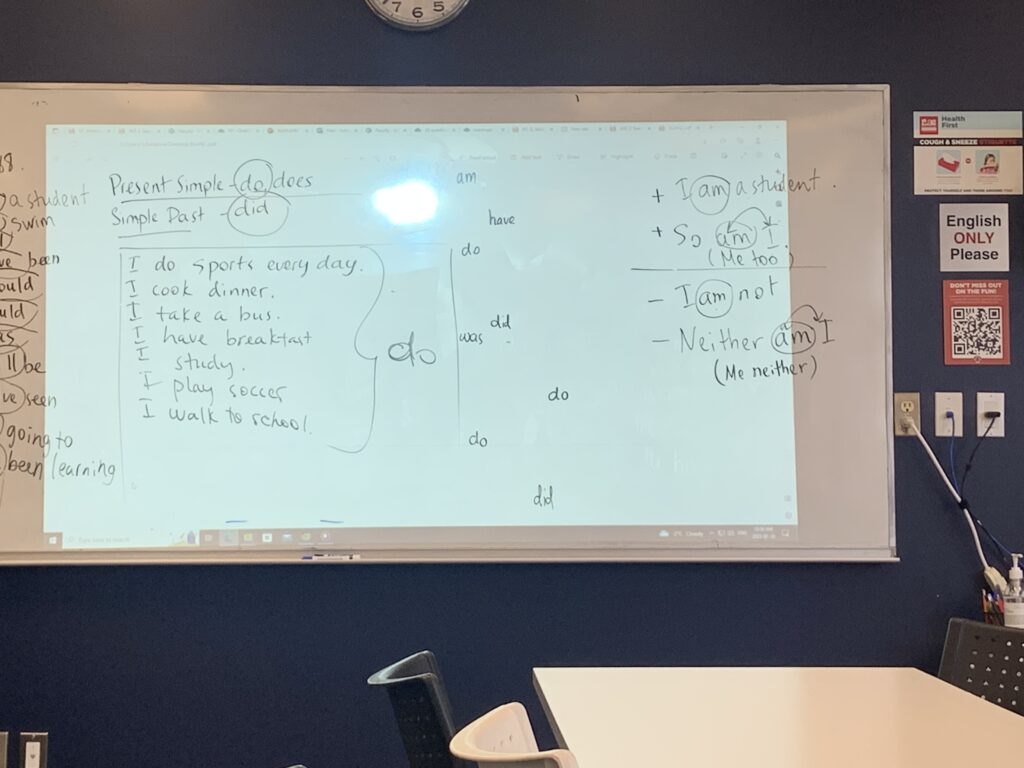 5 6 7
8.
a student
swim
been
ould
uld
as
'll be
ve seen
going to
been learning
Present Simple - do, does
Simple Past - did
I do sports every day.
I cook dinner.
I take a bus.
I have breakfast
I study.
I play soccer
I walk to school.
do
am
have
do
did
was
do
do
did
+ I am a student.
+ So am I.
(Me too)
- I am not
- Neither am I
(Me neither)
Type here to search
Health
First
COUGH & SNEEZE ETIQUETTE
PROTECT YOURSELF AND THOSE AROUND YOU
English
ONLY
Please
DON'T MISS OUT
ON THE FUN!